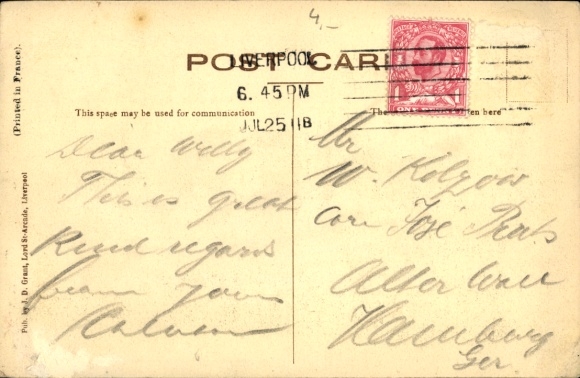 4,-
POST CARD
LIVERPOOL
6. 45 PM
JUL 25 11 B
ONE PENNY
(Printed in France).
This space may be used for communication
The
en here
Pub. by J. D. Grant, Lord St-Arcade, Liverpool
Dear Willy
This is great
Kind regards
from yours
Mr
W. Kolzow
Care José Prats
Alter Wall
Hamburg
Ger.